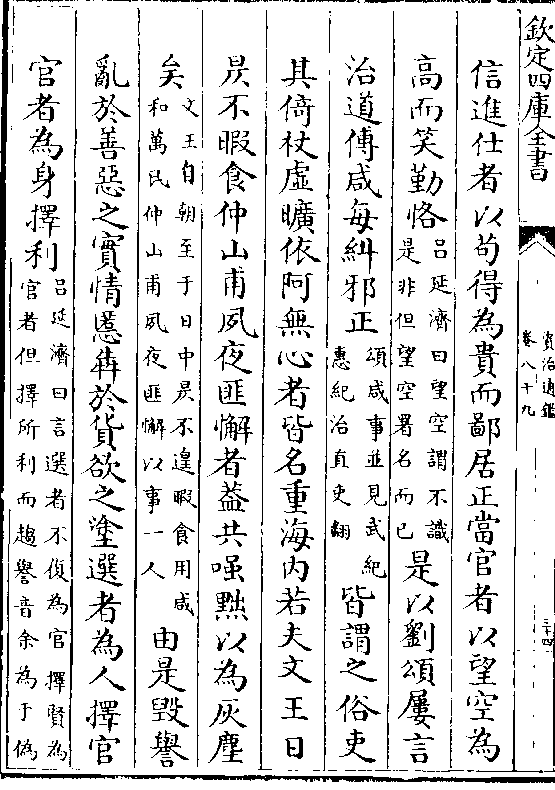 欽定四庫全書
資治通鑑
卷八十九
二十四
信進仕者以苟得為貴而鄙居正當官者以望空為
高而笑勤恪呂延濟曰望空謂不識是非但望空署名而已是以劉頌屢言
治道傅咸每糾邪正頌咸事並見武紀惠紀治直吏翻皆謂之俗吏
其倚杖虛曠依阿無心者皆名重海内若夫文王日
昃不暇食仲山甫夙夜匪懈者葢共嗤黜以為灰塵
矣文王自朝至于日中昃不遑暇食用咸和萬民仲山甫夙夜匪懈以事一人由是毀譽
亂於善惡之實情慝犇於貨欲之塗選者為人擇官
官者為身擇利呂延濟曰言選者不復為官擇賢為官者但擇所利而趨譽音余為于偽